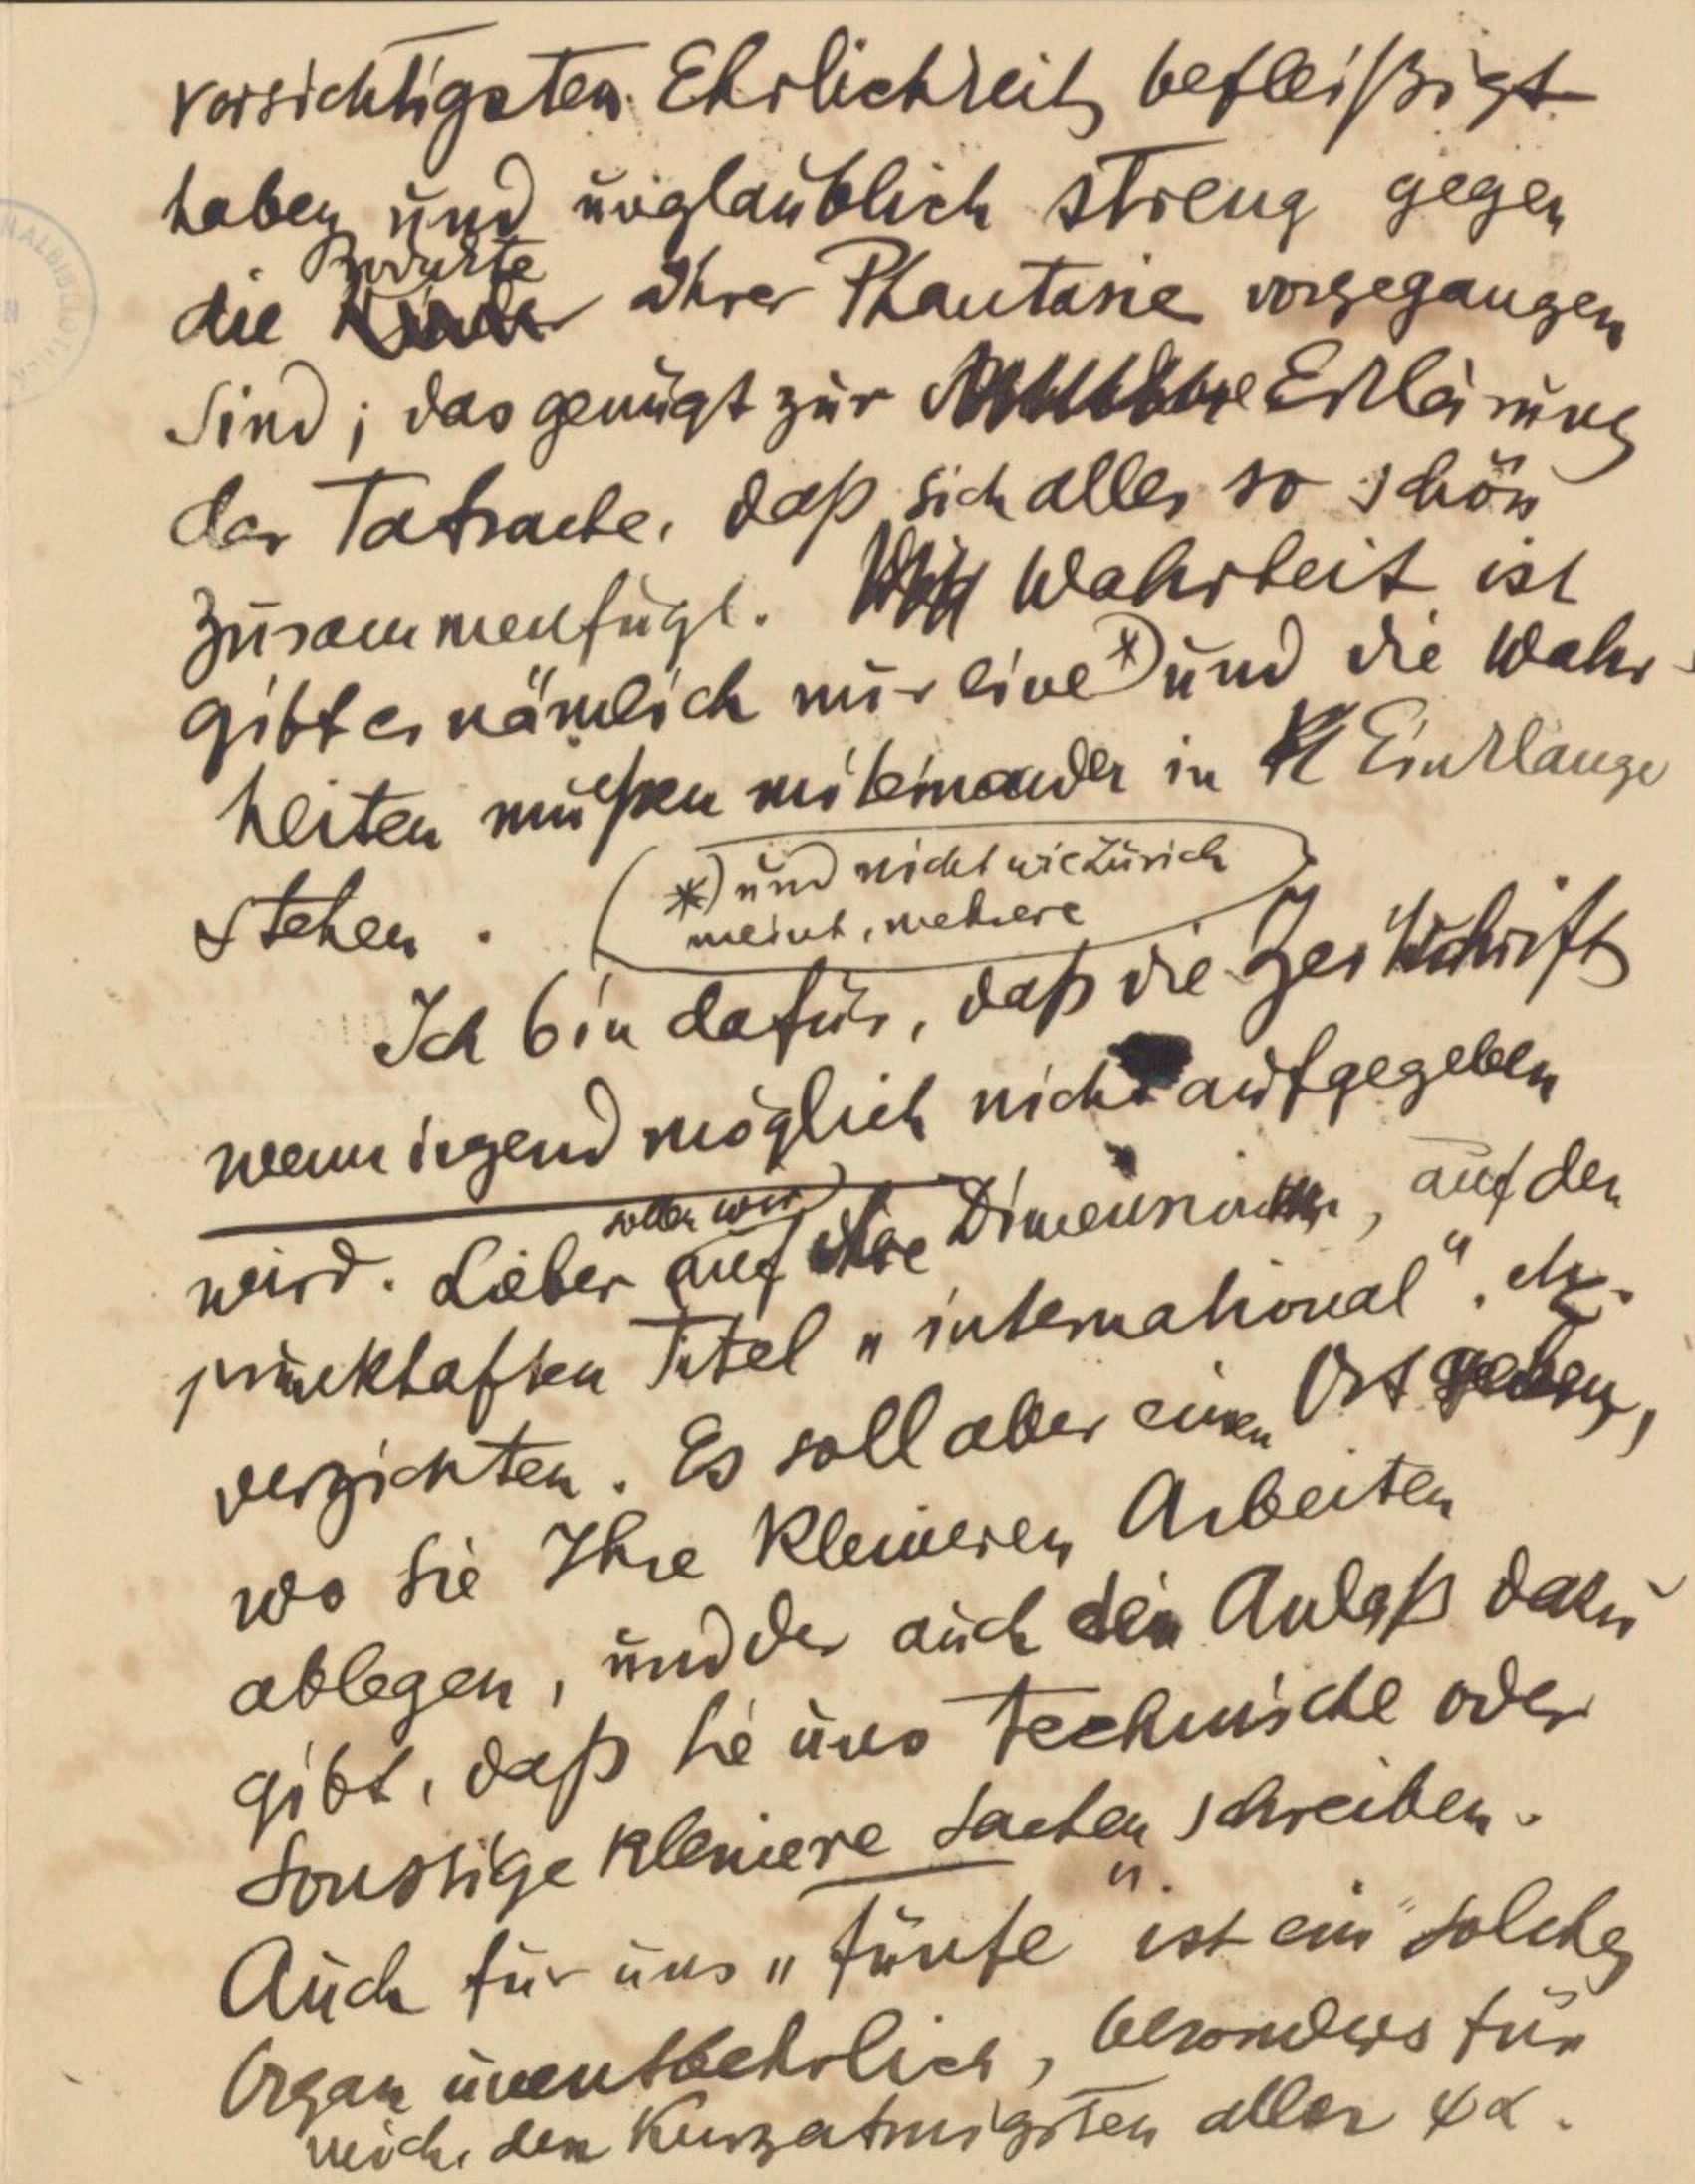 vorsichtigsten Ehrlichkeit befleißigt
haben und unglaublich streng gegen
Produkte
die Kinder Ihrer Phantasie vorgegangen
sind; das genügt zur Erklärung
der Tatsache, daß sich alles so schön
zusammenfügt. Wahrheit ist
gibt es nämlich nur eine *) und die Wahr-
heiten müßen miteinander in Einklange
stehen.
*) und nicht wie Zürich
meint, mehrere
Ich bin dafür, daß die Zeitschrift
wenn irgend möglich nicht aufgegeben
sollen wir
wird. Lieber auf ihre Dimensionen, auf den
prunkhaften Titel „international". etz.
verzichten. Es soll aber einen Ort geben,
wo Sie Ihre kleineren Arbeiten
ablegen, und der auch den Anlaß dazu
gibt, daß Sie uns technische oder
sonstige kleinere Sachen schreiben.
Auch für uns „Fünfe" ist ein solches
Organ unentbehrlich, besonders für
mich, den Kurzatmigsten aller ψα.